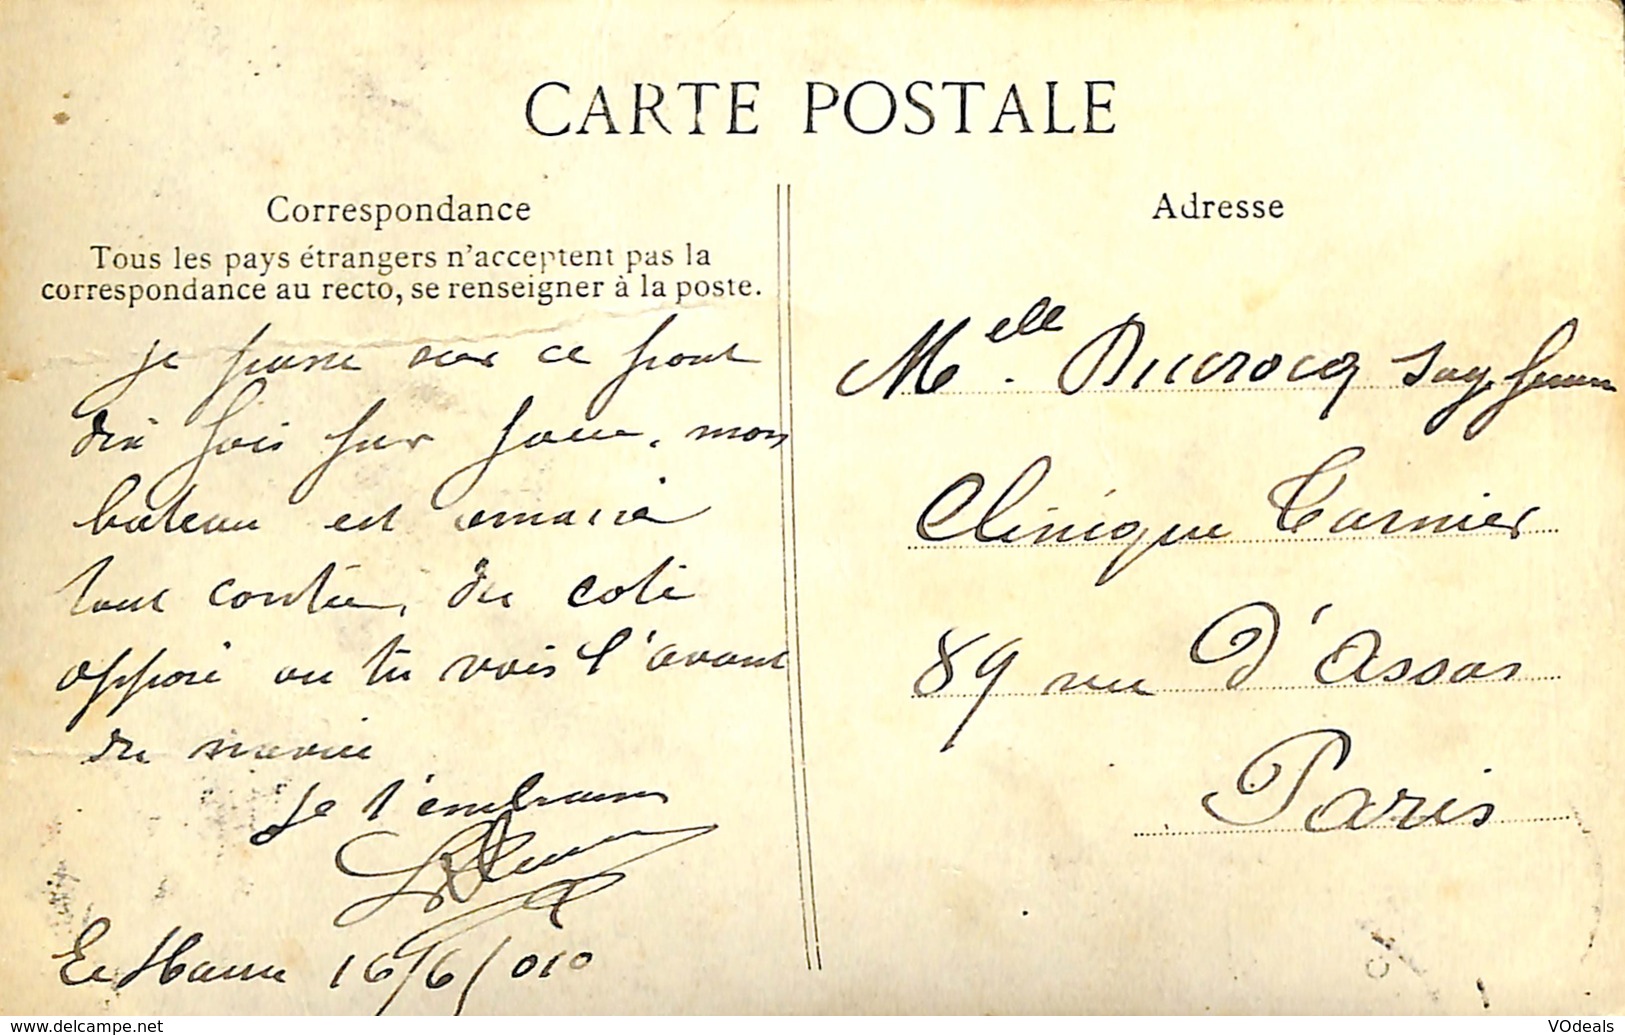 CARTE POSTALE
Correspondance
Tous les pays étrangers n'acceptent pas la
correspondance au recto, se renseigner à la poste.
je passe sur ce pont
dix fois par jour, mon
bateau est amarré
tout contre, du coté
opposé ou tu vois l'avant
du navire
je t'embrasse
Le Havre 16/6/010
Adresse
Melle. Ducrocq Sage femme
Clinique Tarnier
89 rue d'Assas
Paris
© www.delcampe.net
VOdeals